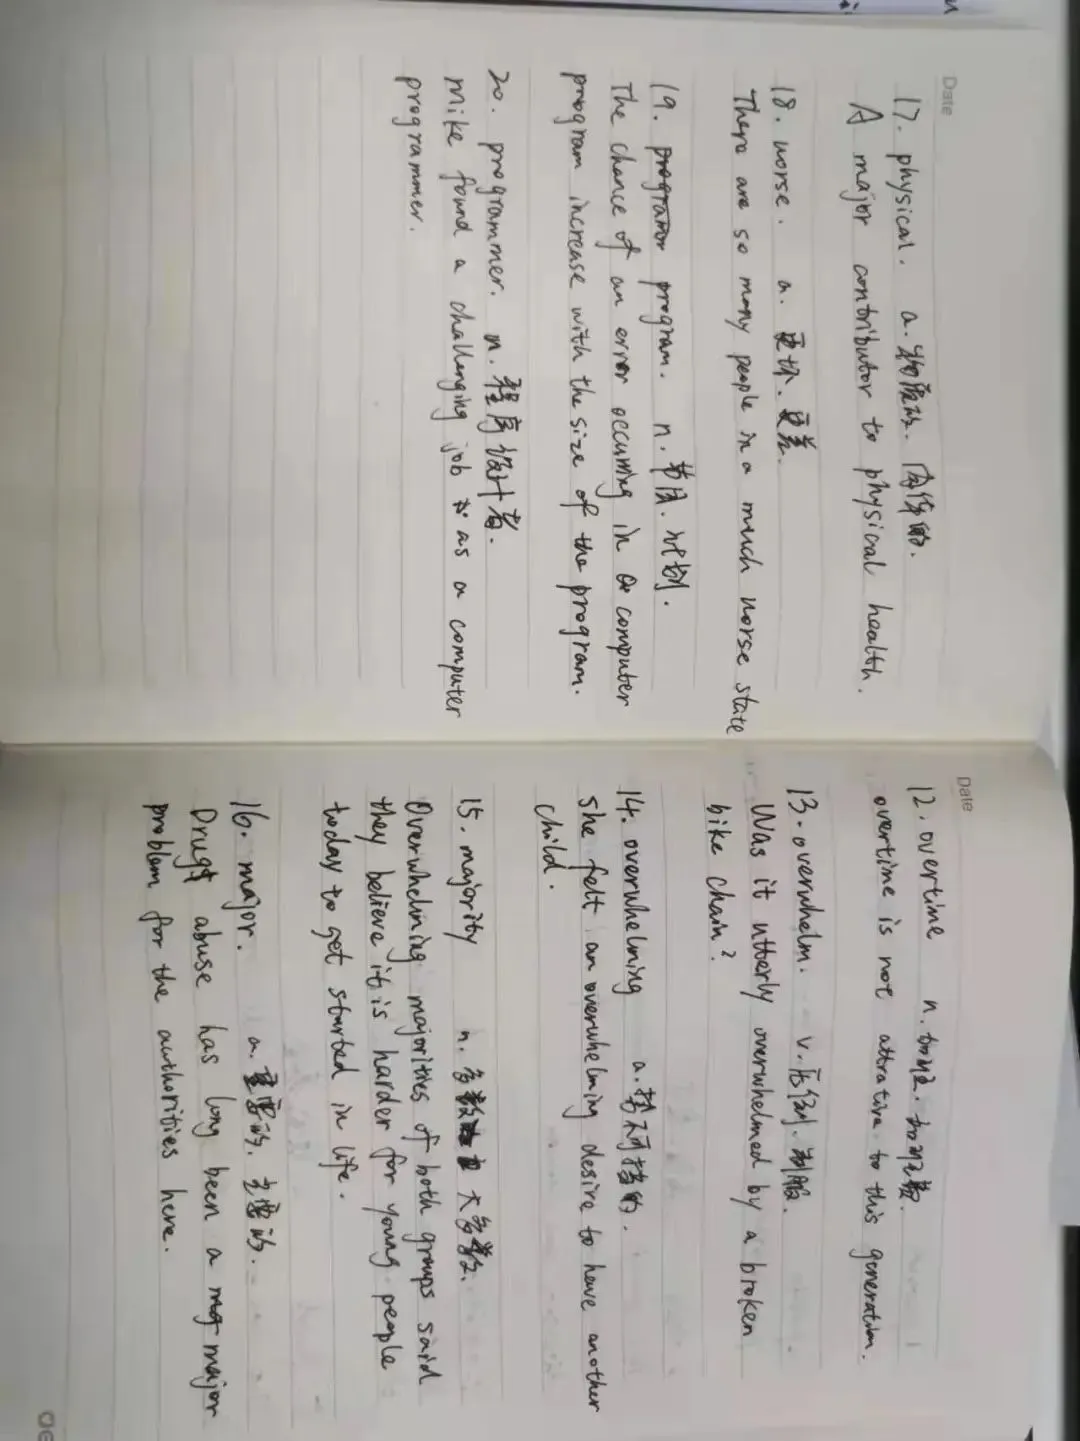 Date
12. overtime n. 加班. 加班费.
overtime is not attrative to this generation.
13. overwhelm. v. 压倒. 制服.
Was it utterly overwhelmed by a broken
bike chain?
14. overwhelming a. 势不可挡的.
She felt an overwhelming desire to have another
child.
15. majority n. 多数 大多数.
Overwhelming majorities of both groups said
they believe it is harder for young people
today to get started in life.
16. major. a. 重要的. 主要的.
Drugs abuse has long been a major
problem for the authorities here.
Date
17. physical. a. 物质的. 身体的.
A major contributor to physical health.
18. worse. a. 更坏. 更差.
There are so many people in a much worse state
19. program. n. 节目. 计划.
The chance of an error occurring in a computer
program increase with the size of the program.
20. programmer. n. 程序设计者.
Mike found a challenging job as a computer
programmer.